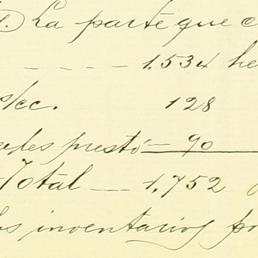 ). La parte que c
- - - - - 1.534 he
s/cc. 128
edes prestó — 90
Total — 1,752
os inventarios pr